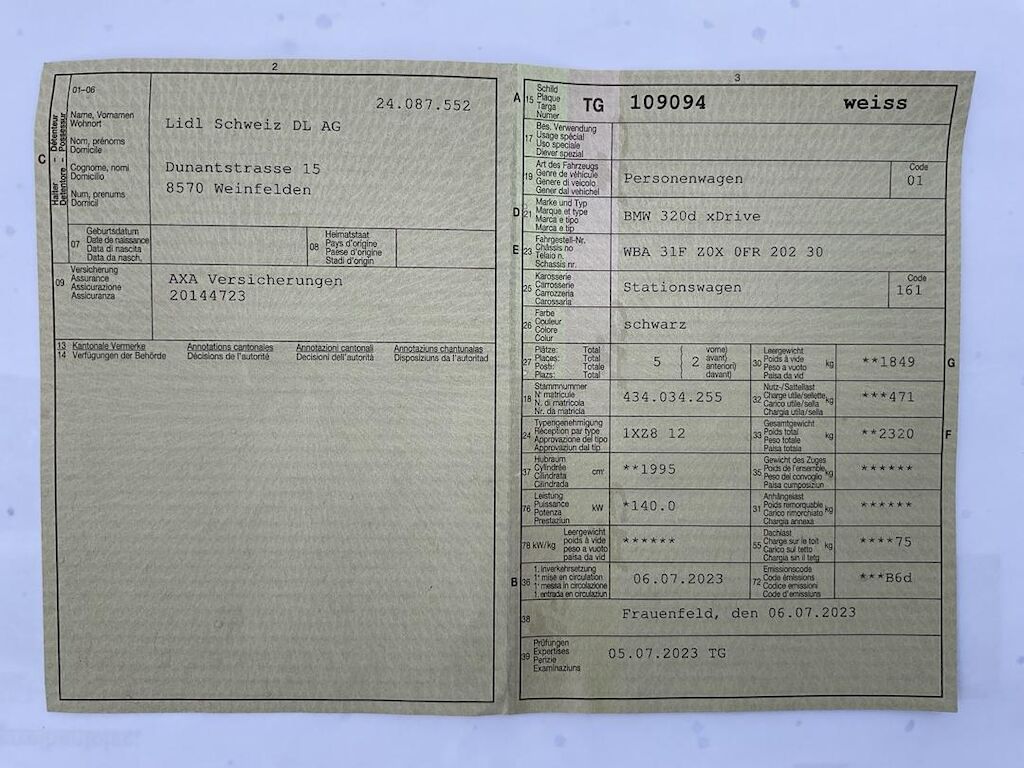 2
01–06
24.087.552
C
Halter – Détenteur
Detentore – Possessur
Name, Vornamen
Wohnort
Lidl Schweiz DL AG
Nom, prénoms
Domicile
Cognome, nomi
Domicilio
Dunantstrasse 15
8570 Weinfelden
Num, prenums
Domicil
07
Geburtsdatum
Date de naissance
Data di nascita
Data da nasch.
08
Heimatstaat
Pays d'origine
Paese d'origine
Stadi d'origin
09
Versicherung
Assurance
Assicurazione
Assicuranza
AXA Versicherungen
20144723
13 Kantonale Vermerke Annotations cantonales Annotazioni cantonali Annotaziuns chantunalas
14 Verfügungen der Behörde Décisions de l'autorité Decisioni dell'autorità Disposiziuns da l'autoritad
3
A 15
Schild
Plaque
Targa
Numer
TG 109094 weiss
17
Bes. Verwendung
Usage spécial
Uso speciale
Diever spezial
19
Art des Fahrzeugs
Genre de véhicule
Genere di veicolo
Gener dal vehichel
Personenwagen
Code
01
D 21
Marke und Typ
Marque et type
Marca e tipo
Marca e tip
BMW 320d xDrive
E 23
Fahrgestell-Nr.
Châssis no
Telaio n.
Schassis nr.
WBA 31F Z0X 0FR 202 30
25
Karosserie
Carrosserie
Carrozzeria
Carossaria
Stationswagen
Code
161
26
Farbe
Couleur
Colore
Colur
schwarz
27
Plätze: Total
Places: Total
Posti: Totale
Plazs: Total
5 { 2
vorne)
avant)
anteriori)
davant)
30
Leergewicht
Poids à vide
Peso a vuoto
Paisa da vid
kg
**1849
G
18
Stammnummer
N° matricule
N. di matricola
Nr. da matricla
434.034.255
32
Nutz-/Sattellast
Charge utile/sellette
Carico utile/sella
Chargia utila/sella
kg
***471
24
Typengenehmigung
Réception par type
Approvazione del tipo
Approvaziun dal tip
1XZ8 12
33
Gesamtgewicht
Poids total
Peso totale
Paisa totala
kg
**2320
F
37
Hubraum
Cylindrée
Cilindrata
Cilindrada
cm³
**1995
35
Gewicht des Zuges
Poids de l'ensemble
Peso del convoglio
Paisa cumposiziun
kg
******
76
Leistung
Puissance
Potenza
Prestaziun
kW
*140.0
31
Anhängelast
Poids remorquable
Carico rimorchiato
Chargia annexa
kg
******
78 kW/kg
Leergewicht
poids à vide
peso a vuoto
paisa da vid
******
55
Dachlast
Charge sur le toit
Carico sul tetto
Chargia sin il tetg
kg
****75
B 36
1. Inverkehrsetzung
1re mise en circulation
1a messa in circolazione
1. entrada en circulaziun
06.07.2023
72
Emissionscode
Code émissions
Codice emissioni
Code d'emissiuns
***B6d
38
Frauenfeld, den 06.07.2023
39
Prüfungen
Expertises
Perizie
Examinaziuns
05.07.2023 TG